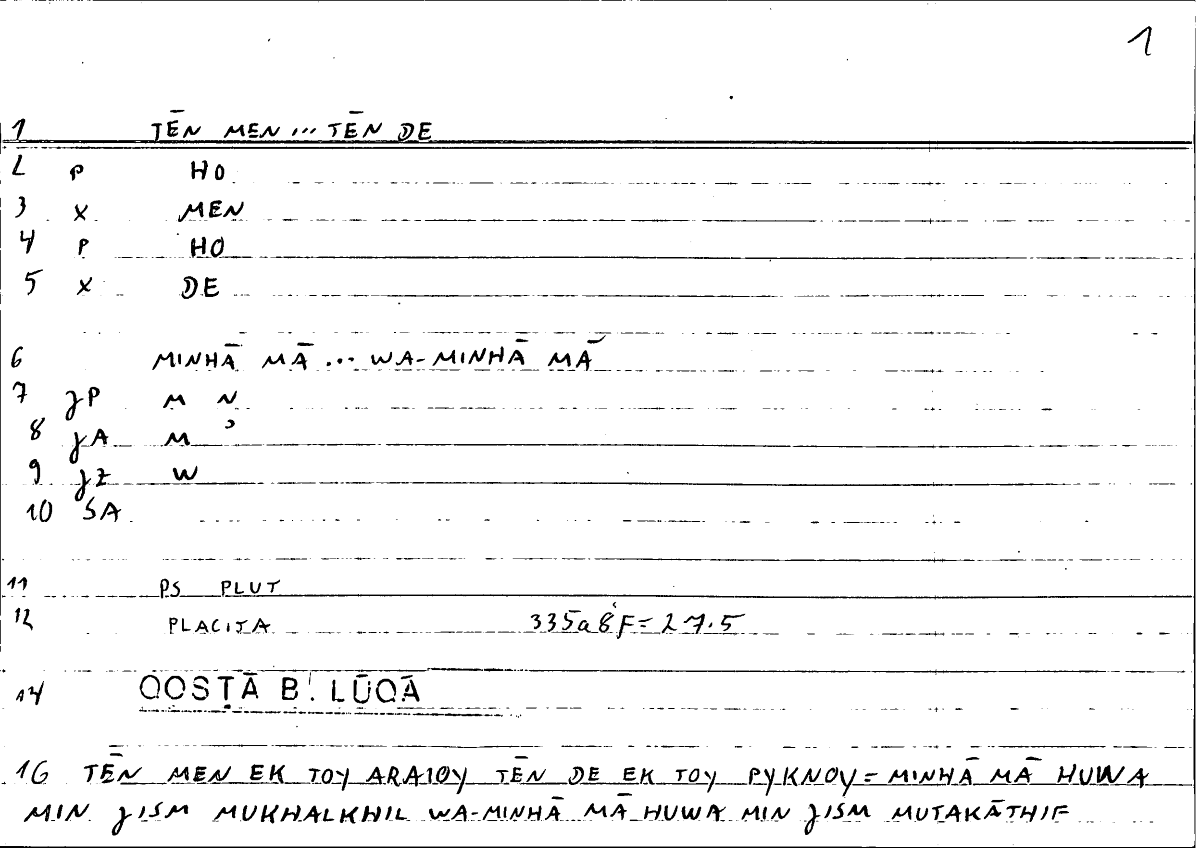 1
1 TĒN MEN ... TĒN DE
2 P HO
3 X MEN
4 P HO
5 X DE
6 MINHĀ MĀ ... WA-MINHĀ MĀ
7 JP M N
8 JA M ʾ
9 JZ W
10 SA
11 PS PLUT
12 PLACITA 335a8F=27.5
14 QOSṬĀ B. LŪQĀ
16 TĒN MEN EK TOY ARAIOY TĒN DE EK TOY PYKNOY = MINHĀ MĀ HUWA
MIN JISM MUKHALKHIL WA-MINHĀ MĀ HUWA MIN JISM MUTAKĀTHIF